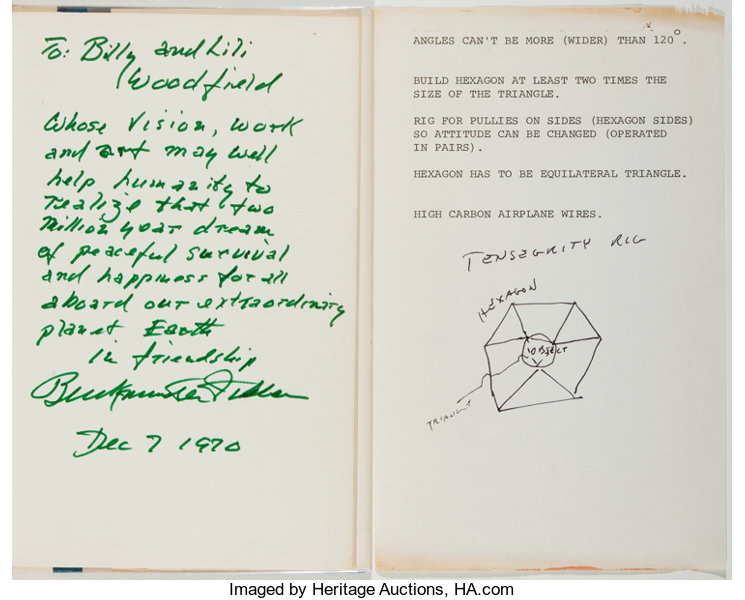 To: Billy and Lili
Woodfield
Whose Vision, work
and art may well
help humanity to
realize that two
Million year dream
of peaceful survival
and happiness for all
aboard our extraordinary
planet Earth
in friendship
Buckminster Fuller
Dec 7 1970
ANGLES CAN'T BE MORE (WIDER) THAN 120°.
BUILD HEXAGON AT LEAST TWO TIMES THE
SIZE OF THE TRIANGLE.
RIG FOR PULLIES ON SIDES (HEXAGON SIDES)
SO ATTITUDE CAN BE CHANGED (OPERATED
IN PAIRS).
HEXAGON HAS TO BE EQUILATERAL TRIANGLE.
HIGH CARBON AIRPLANE WIRES.
TENSEGRITY RIG
HEXAGON
OBJECT
TRIANGLE
Imaged by Heritage Auctions, HA.com